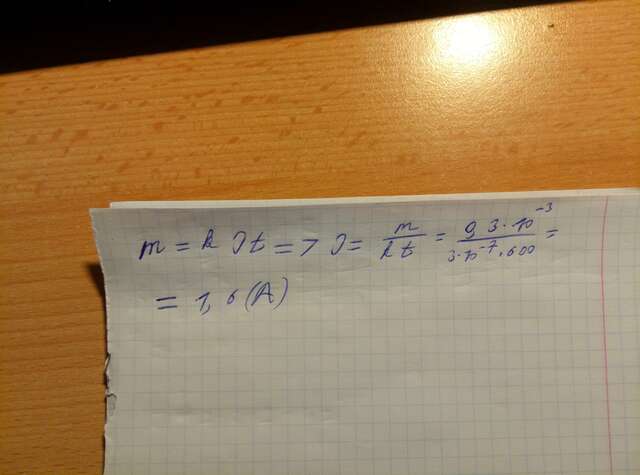 m = k Jt => J = m/kt = 0,3·10⁻³/3·10⁻⁷·600 =
= 1,6 (A)